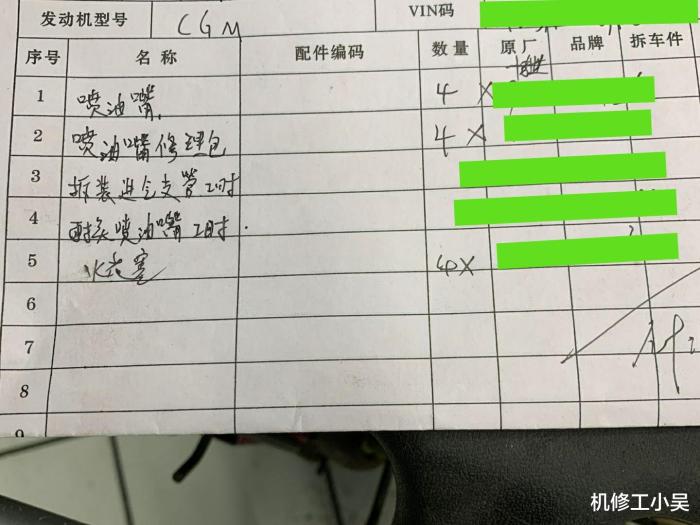 发动机型号 CGM VIN码
序号 名称 配件编码 数量 原厂 品牌 拆车件
1 喷油嘴. 4 X
2 喷油嘴修理包 4 X
3 拆装进气支管工时
4 耐换喷油嘴工时.
5 火花塞 4X
6
7
8
9
机修工小吴